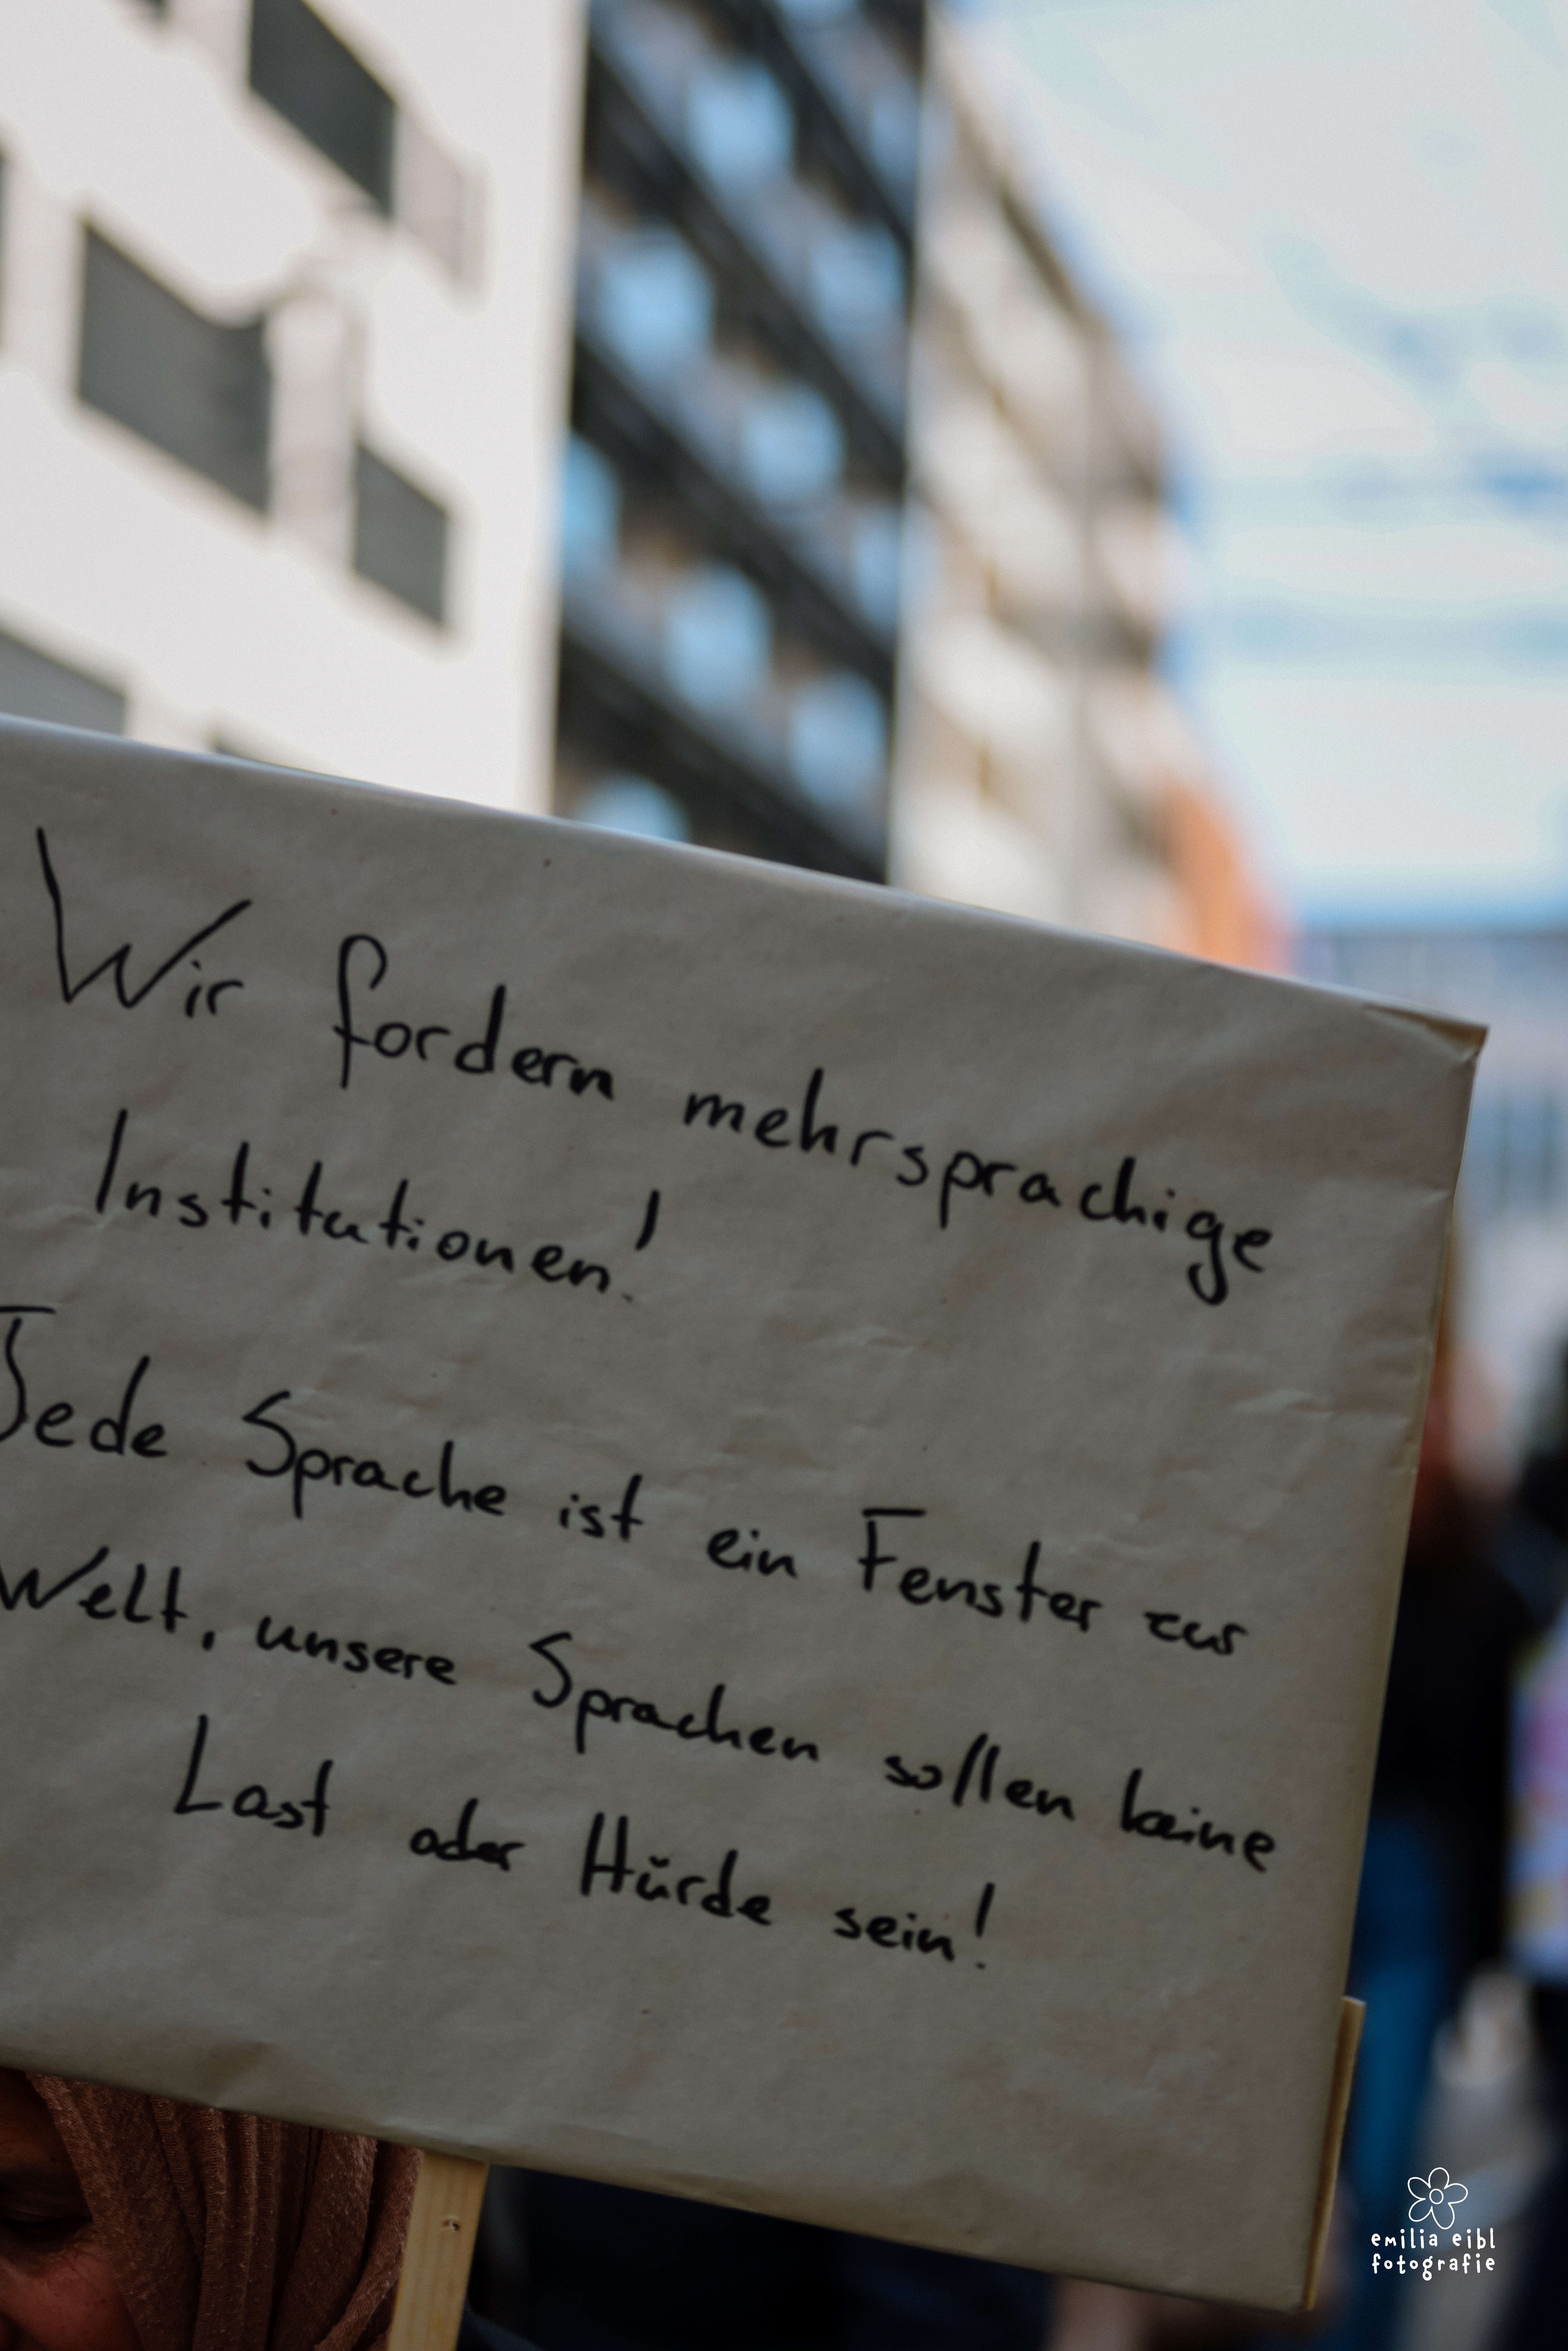 Wir fordern mehrsprachige
Institutionen!
Jede Sprache ist ein Fenster zur
Welt, unsere Sprachen sollen keine
Last oder Hürde sein!
emilia eibl
fotografie